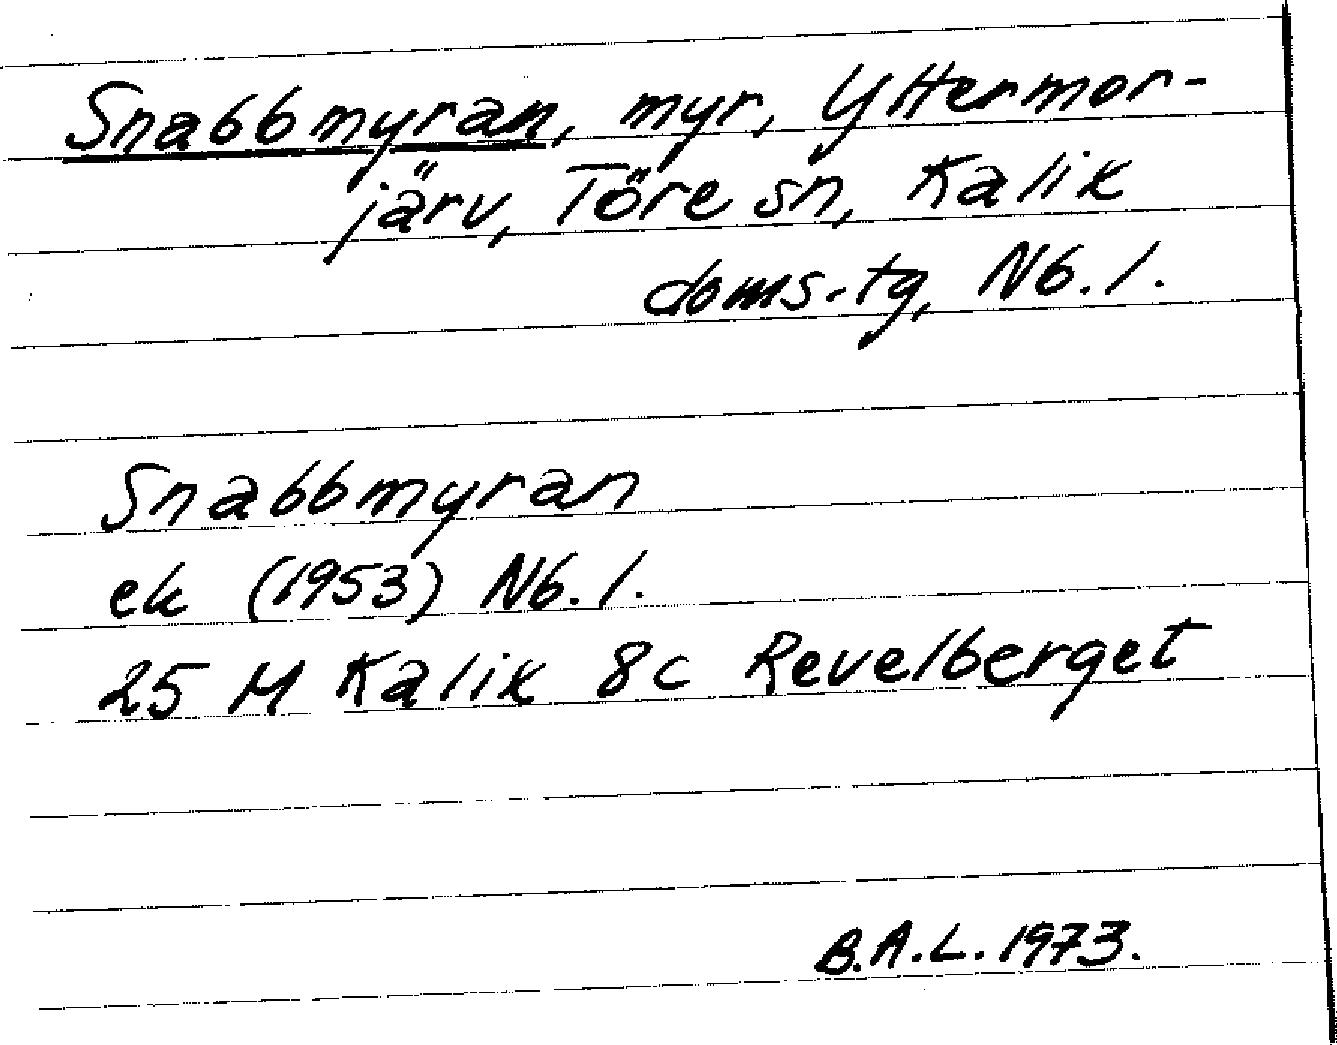 Snabbmyran, myr, Yttermor-
järv, Töre sn, Kalix
doms.tg, Nb. l.
Snabbmyran
ek (1953) Nb. l.
25 M Kalix 8c Revelberget
B.A.L. 1973.